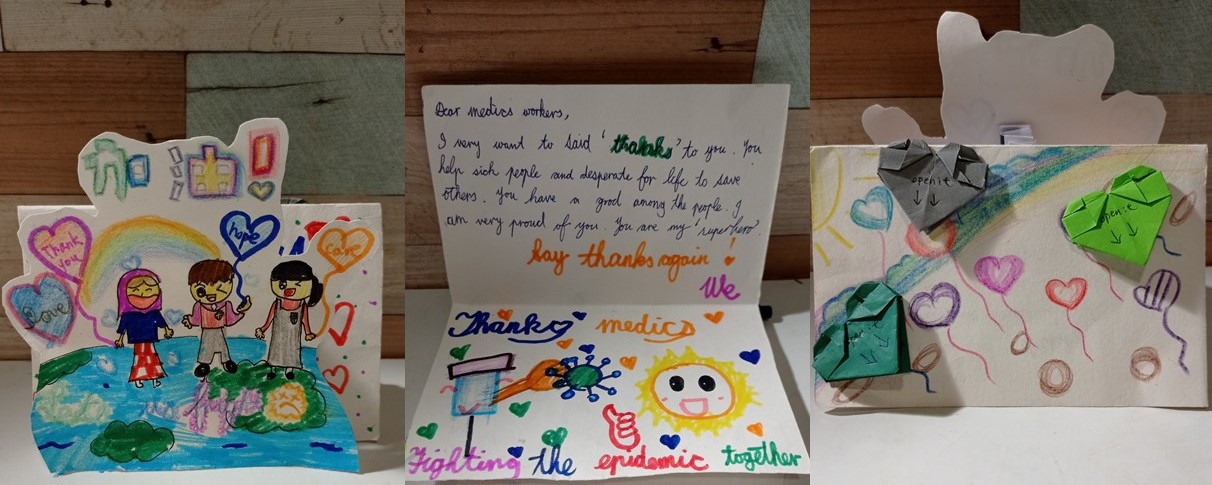 加油!
Thank
you
hope
Care
Love
Let's us fight
Dear medics workers,
I very want to said 'thanks' to you. You
help sick people and desperate for life to save
others. You have a good among the people. I
am very proud of you. You are my 'superhero'.
Say thanks again!
We
Thank medics
Fighting the epidemic together
open it
open it
open it